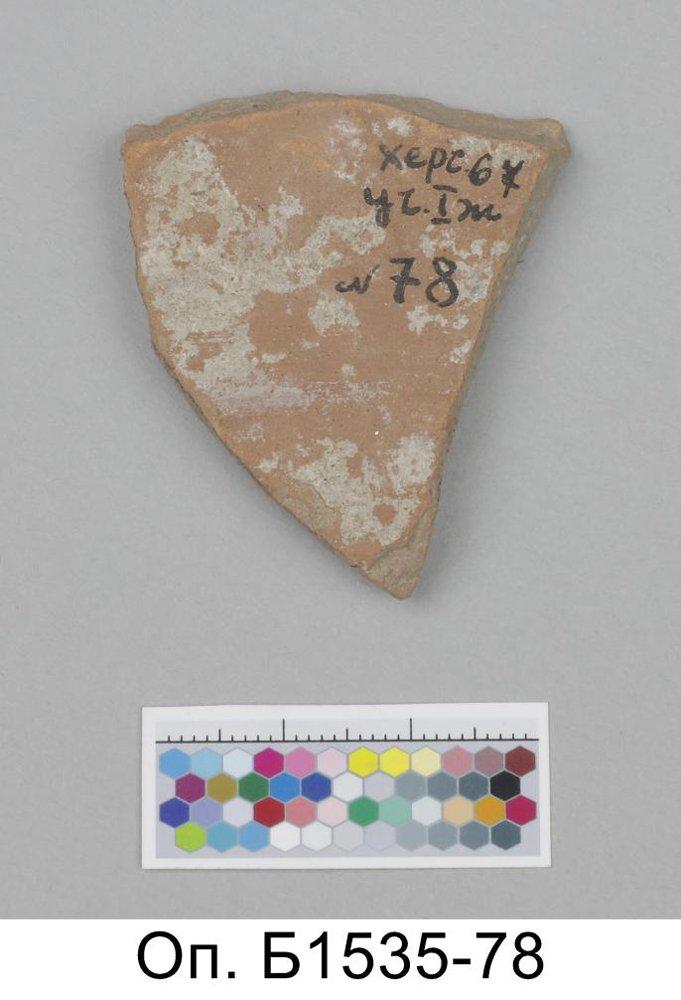 Херс.67
уч.Iж
№78
Оп. Б1535-78